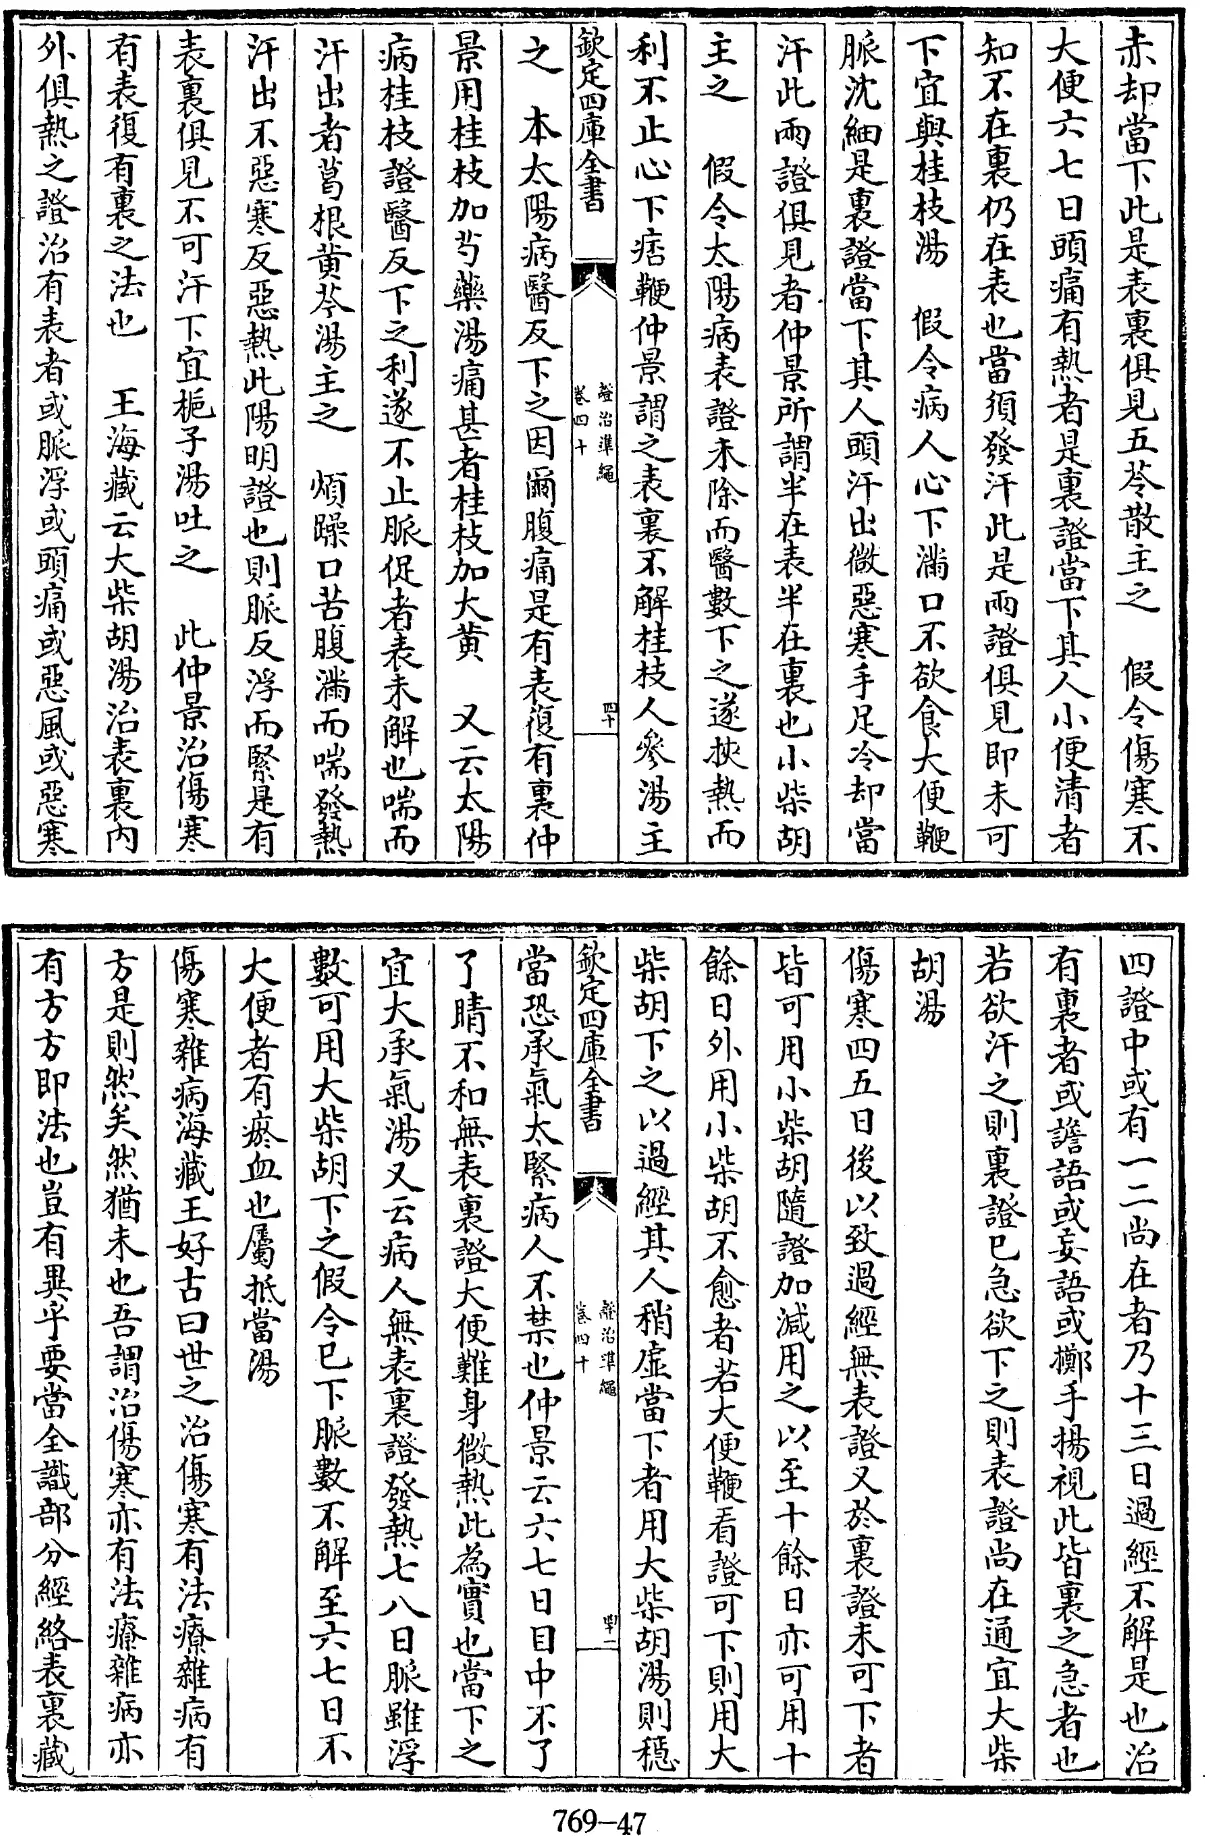 赤却當下此是表裏俱見五苓散主之　假令傷寒不
大便六七日頭痛有熱者是裏證當下其人小便清者
知不在裏仍在表也當須發汗此是兩證俱見即未可
下宜與桂枝湯　假令病人心下滿口不欲食大便鞕
脈沈細是裏證當下其人頭汗出微惡寒手足冷却當
汗此兩證俱見者仲景所謂半在表半在裏也小柴胡
主之　假令太陽病表證未除而醫數下之遂挾熱而
利不止心下痞鞕仲景謂之表裏不解桂枝人參湯主
欽定四庫全書
證治準繩
卷四十
四十
之　本太陽病醫反下之因爾腹痛是有表復有裏仲
景用桂枝加芍藥湯痛甚者桂枝加大黄　又云太陽
病桂枝證醫反下之利遂不止脈促者表未解也喘而
汗出者葛根黄芩湯主之　煩躁口苦腹滿而喘發熱
汗出不惡寒反惡熱此陽明證也則脈反浮而緊是有
表裏俱見不可汗下宜梔子湯吐之　此仲景治傷寒
有表復有裏之法也　王海藏云大柴胡湯治表裏内
外俱熱之證治有表者或脈浮或頭痛或惡風或惡寒
四證中或有一二尚在者乃十三日過經不解是也治
有裏者或譫語或妄語或擲手揚視此皆裏之急者也
若欲汗之則裏證已急欲下之則表證尚在通宜大柴
胡湯
傷寒四五日後以致過經無表證又於裏證未可下者
皆可用小柴胡隨證加減用之以至十餘日亦可用十
餘日外用小柴胡不愈者若大便鞕看證可下則用大
柴胡下之以過經其人稍虚當下者用大柴胡湯則穩
欽定四庫全書
證治準繩
卷四十
當恐承氣太緊病人不禁也仲景云六七日目中不了
了睛不和無表裏證大便難身微熱此為實也當下之
宜大承氣湯又云病人無表裏證發熱七八日脈雖浮
數可用大柴胡下之假令已下脈數不解至六七日不
大便者有瘀血也屬抵當湯
傷寒雜病海藏王好古曰世之治傷寒有法療雜病有
方是則然矣然猶未也吾謂治傷寒亦有法療雜病亦
有方方即法也豈有異乎要當全識部分經絡表裏藏
769-47